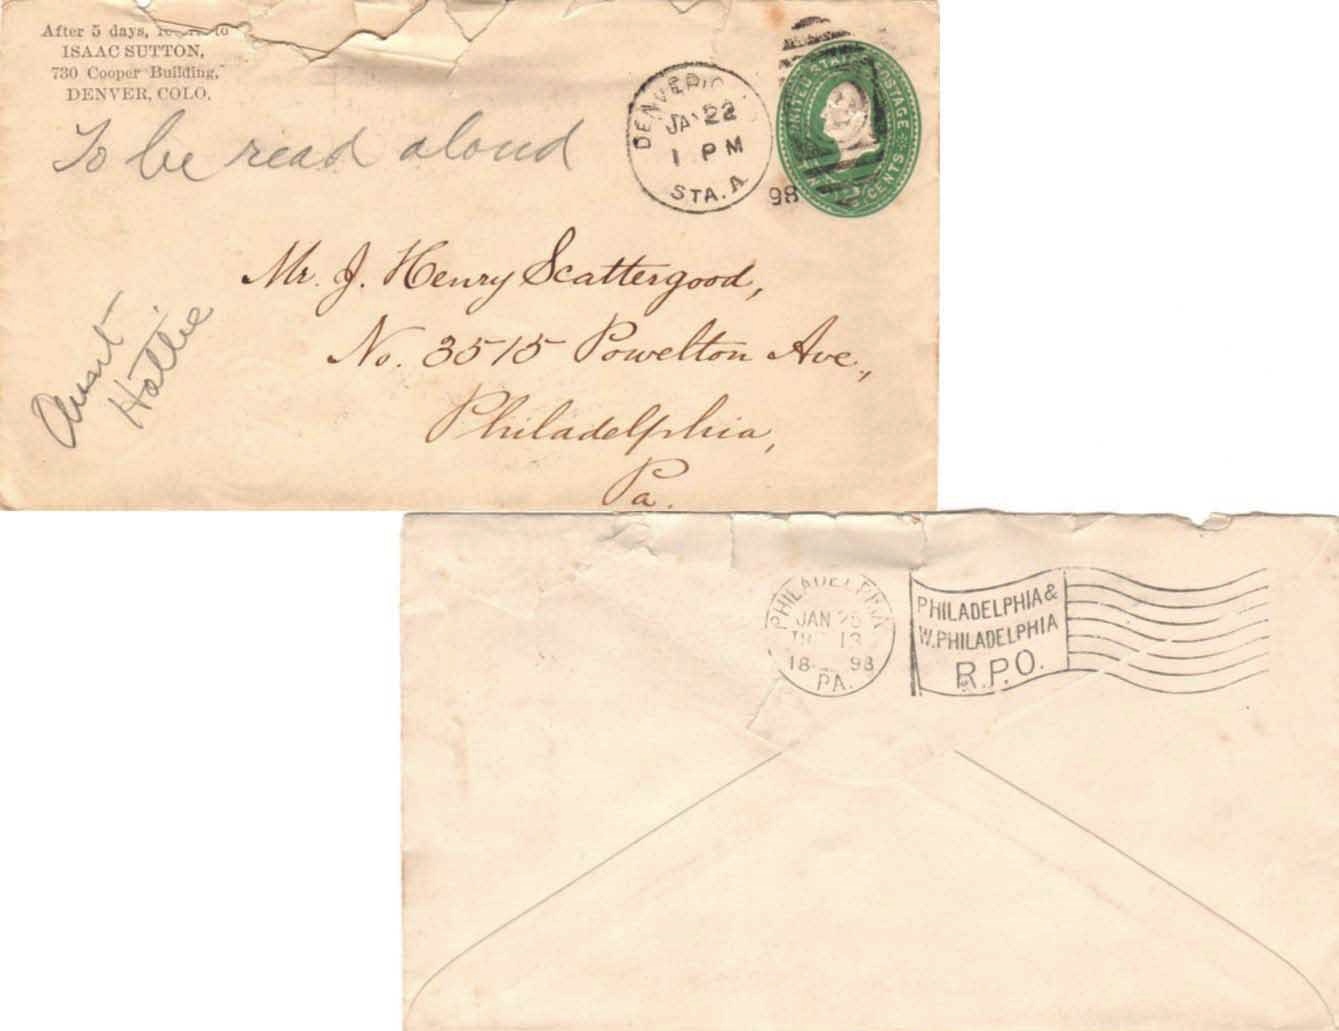 After 5 days, return to
ISAAC SUTTON,
730 Cooper Building,
DENVER, COLO.
To be read aloud
DENVER
JA 22
1 PM
STA. A
98
UNITED STATES POSTAGE
CENTS
Mr. J. Henry Scattergood,
No. 3515 Powelton Ave.,
Philadelphia,
Pa.
Aunt
Hattie
PHILADELPHIA
JAN
13
18 98
PA.
PHILADELPHIA &
W. PHILADELPHIA
R.P.O.